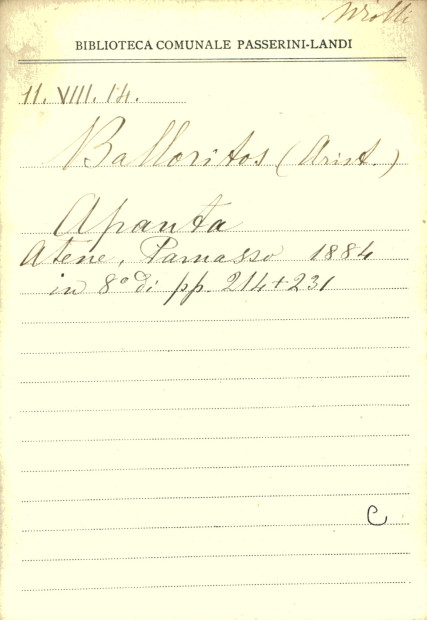 BIBLIOTECA COMUNALE PASSERINI-LANDI
11. VIII. 14.
Balloritos (Arist.)
Apanta
Atene, Parnasso 1884
in 8° di pp. 214+231
C